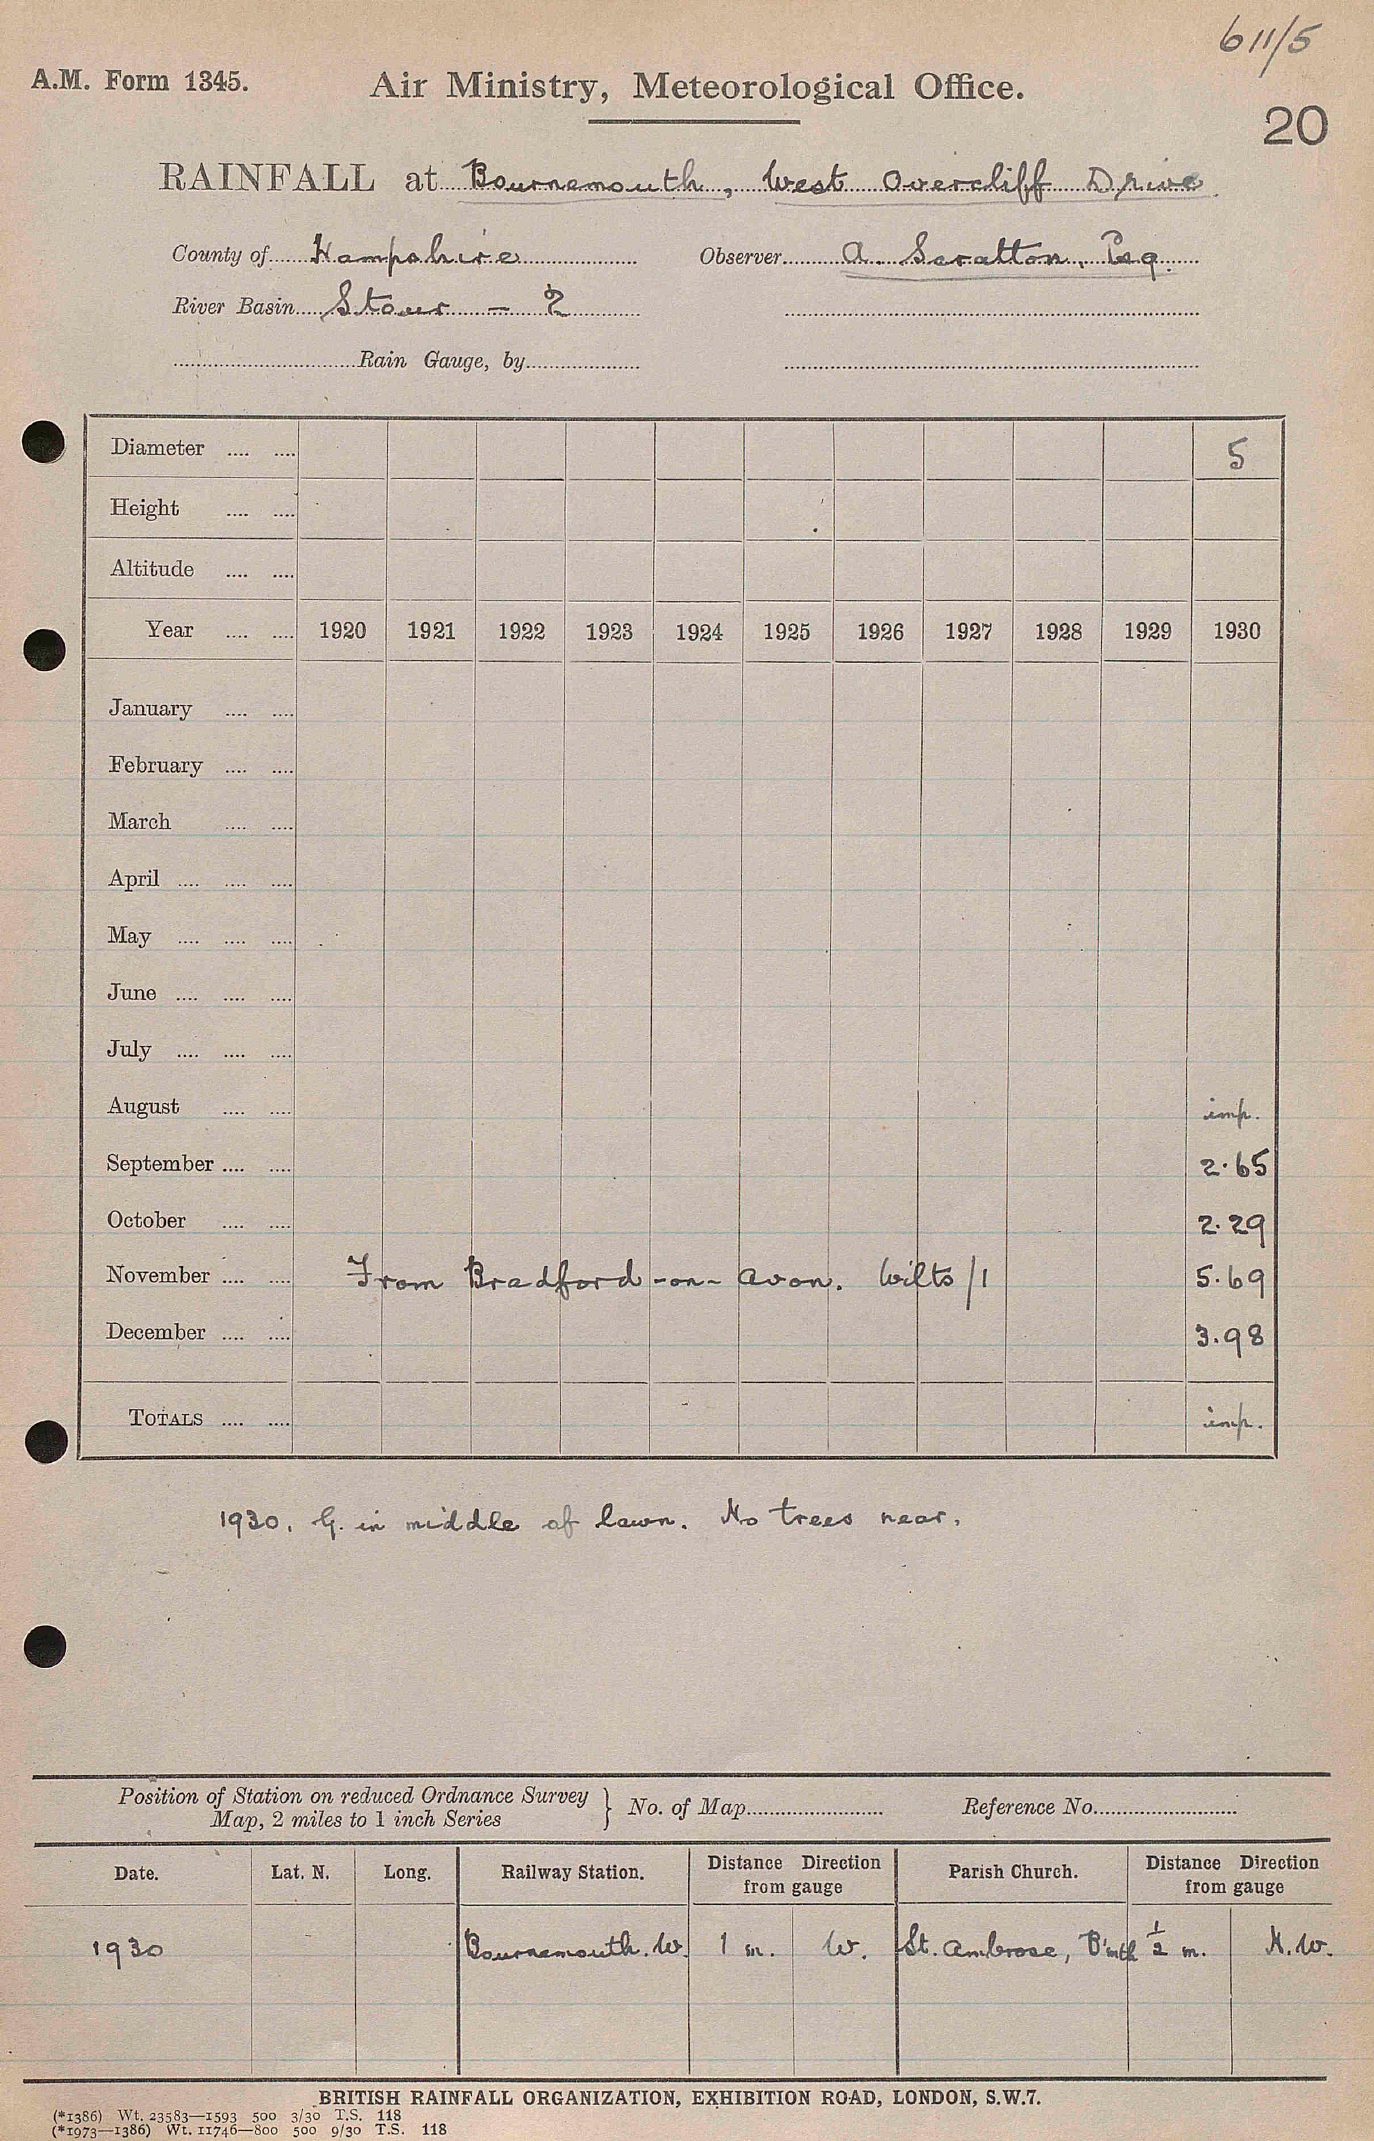 611/5
A.M. Form 1345. Air Ministry, Meteorological Office.
20
RAINFALL at Bournemouth, West Overcliff Drive.
County of Hampshire Observer A. Scratton, Esq.
River Basin Stour - 2
Rain Gauge, by
Diameter .... .... 5
Height .... ....
Altitude .... ....
Year .... .... 1920 1921 1922 1923 1924 1925 1926 1927 1928 1929 1930
January .... ....
February .... ....
March .... ....
April .... .... ....
May .... .... ....
June .... .... ....
July .... .... ....
August .... .... imp.
September .... .... 2.65
October .... .... 2.29
November .... .... From Bradford-on-Avon. Wilts/1 5.69
December .... .... 3.98
TOTALS .... .... imp.
1930. G. in middle of lawn. No trees near.
Position of Station on reduced Ordnance Survey
Map, 2 miles to 1 inch Series } No. of Map Reference No.
Date. Lat. N. Long. Railway Station. Distance Direction from gauge Parish Church. Distance Direction from gauge
1930 Bournemouth. W. 1 m. W. St. Ambrose, B'mth 1/2 m. N.W.
BRITISH RAINFALL ORGANIZATION, EXHIBITION ROAD, LONDON, S.W.7.
(*1386) Wt. 23583—1593 500 3/30 T.S. 118
(*1973—1386) Wt. 11746—800 500 9/30 T.S. 118